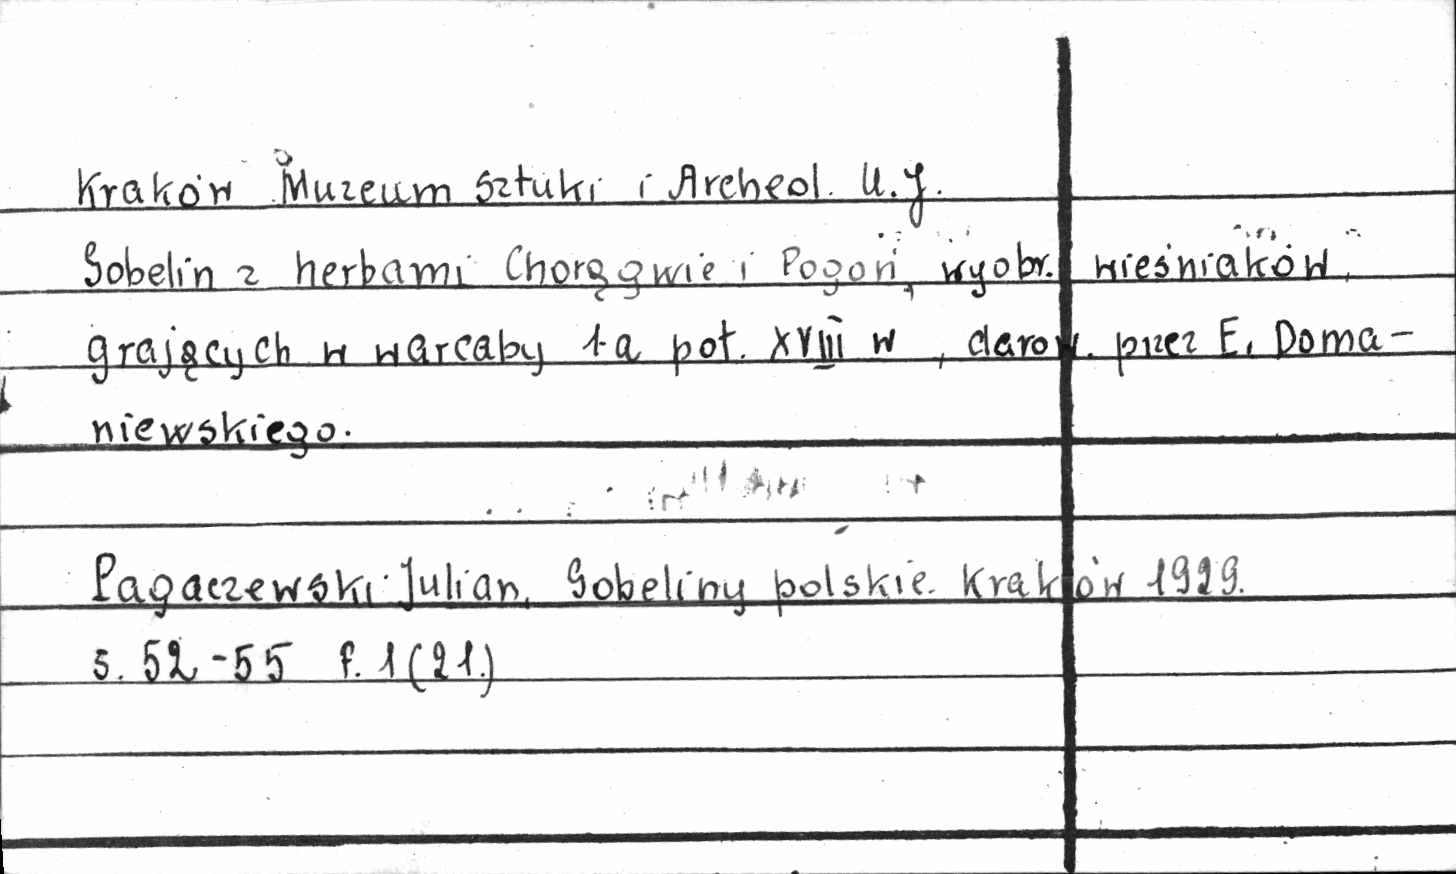 Kraków Muzeum Sztuki i Archeol. U.J.
Gobelin z herbami Chorągwie i Pogoń, wyobr. wieśniaków,
grających w warcaby 1-a poł. XVIII w, darow. przez E. Doma-
niewskiego.
Pagaczewski Julian, Gobeliny polskie. Kraków 1929.
s. 52-55 f. 1(21.)